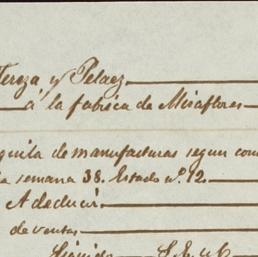 Tereza y Pelaez
á la fabrica de Miraflores
quila de manufacturas segun con
la semana 38. Estado nº 12
A deducir
de ventas
Líquido